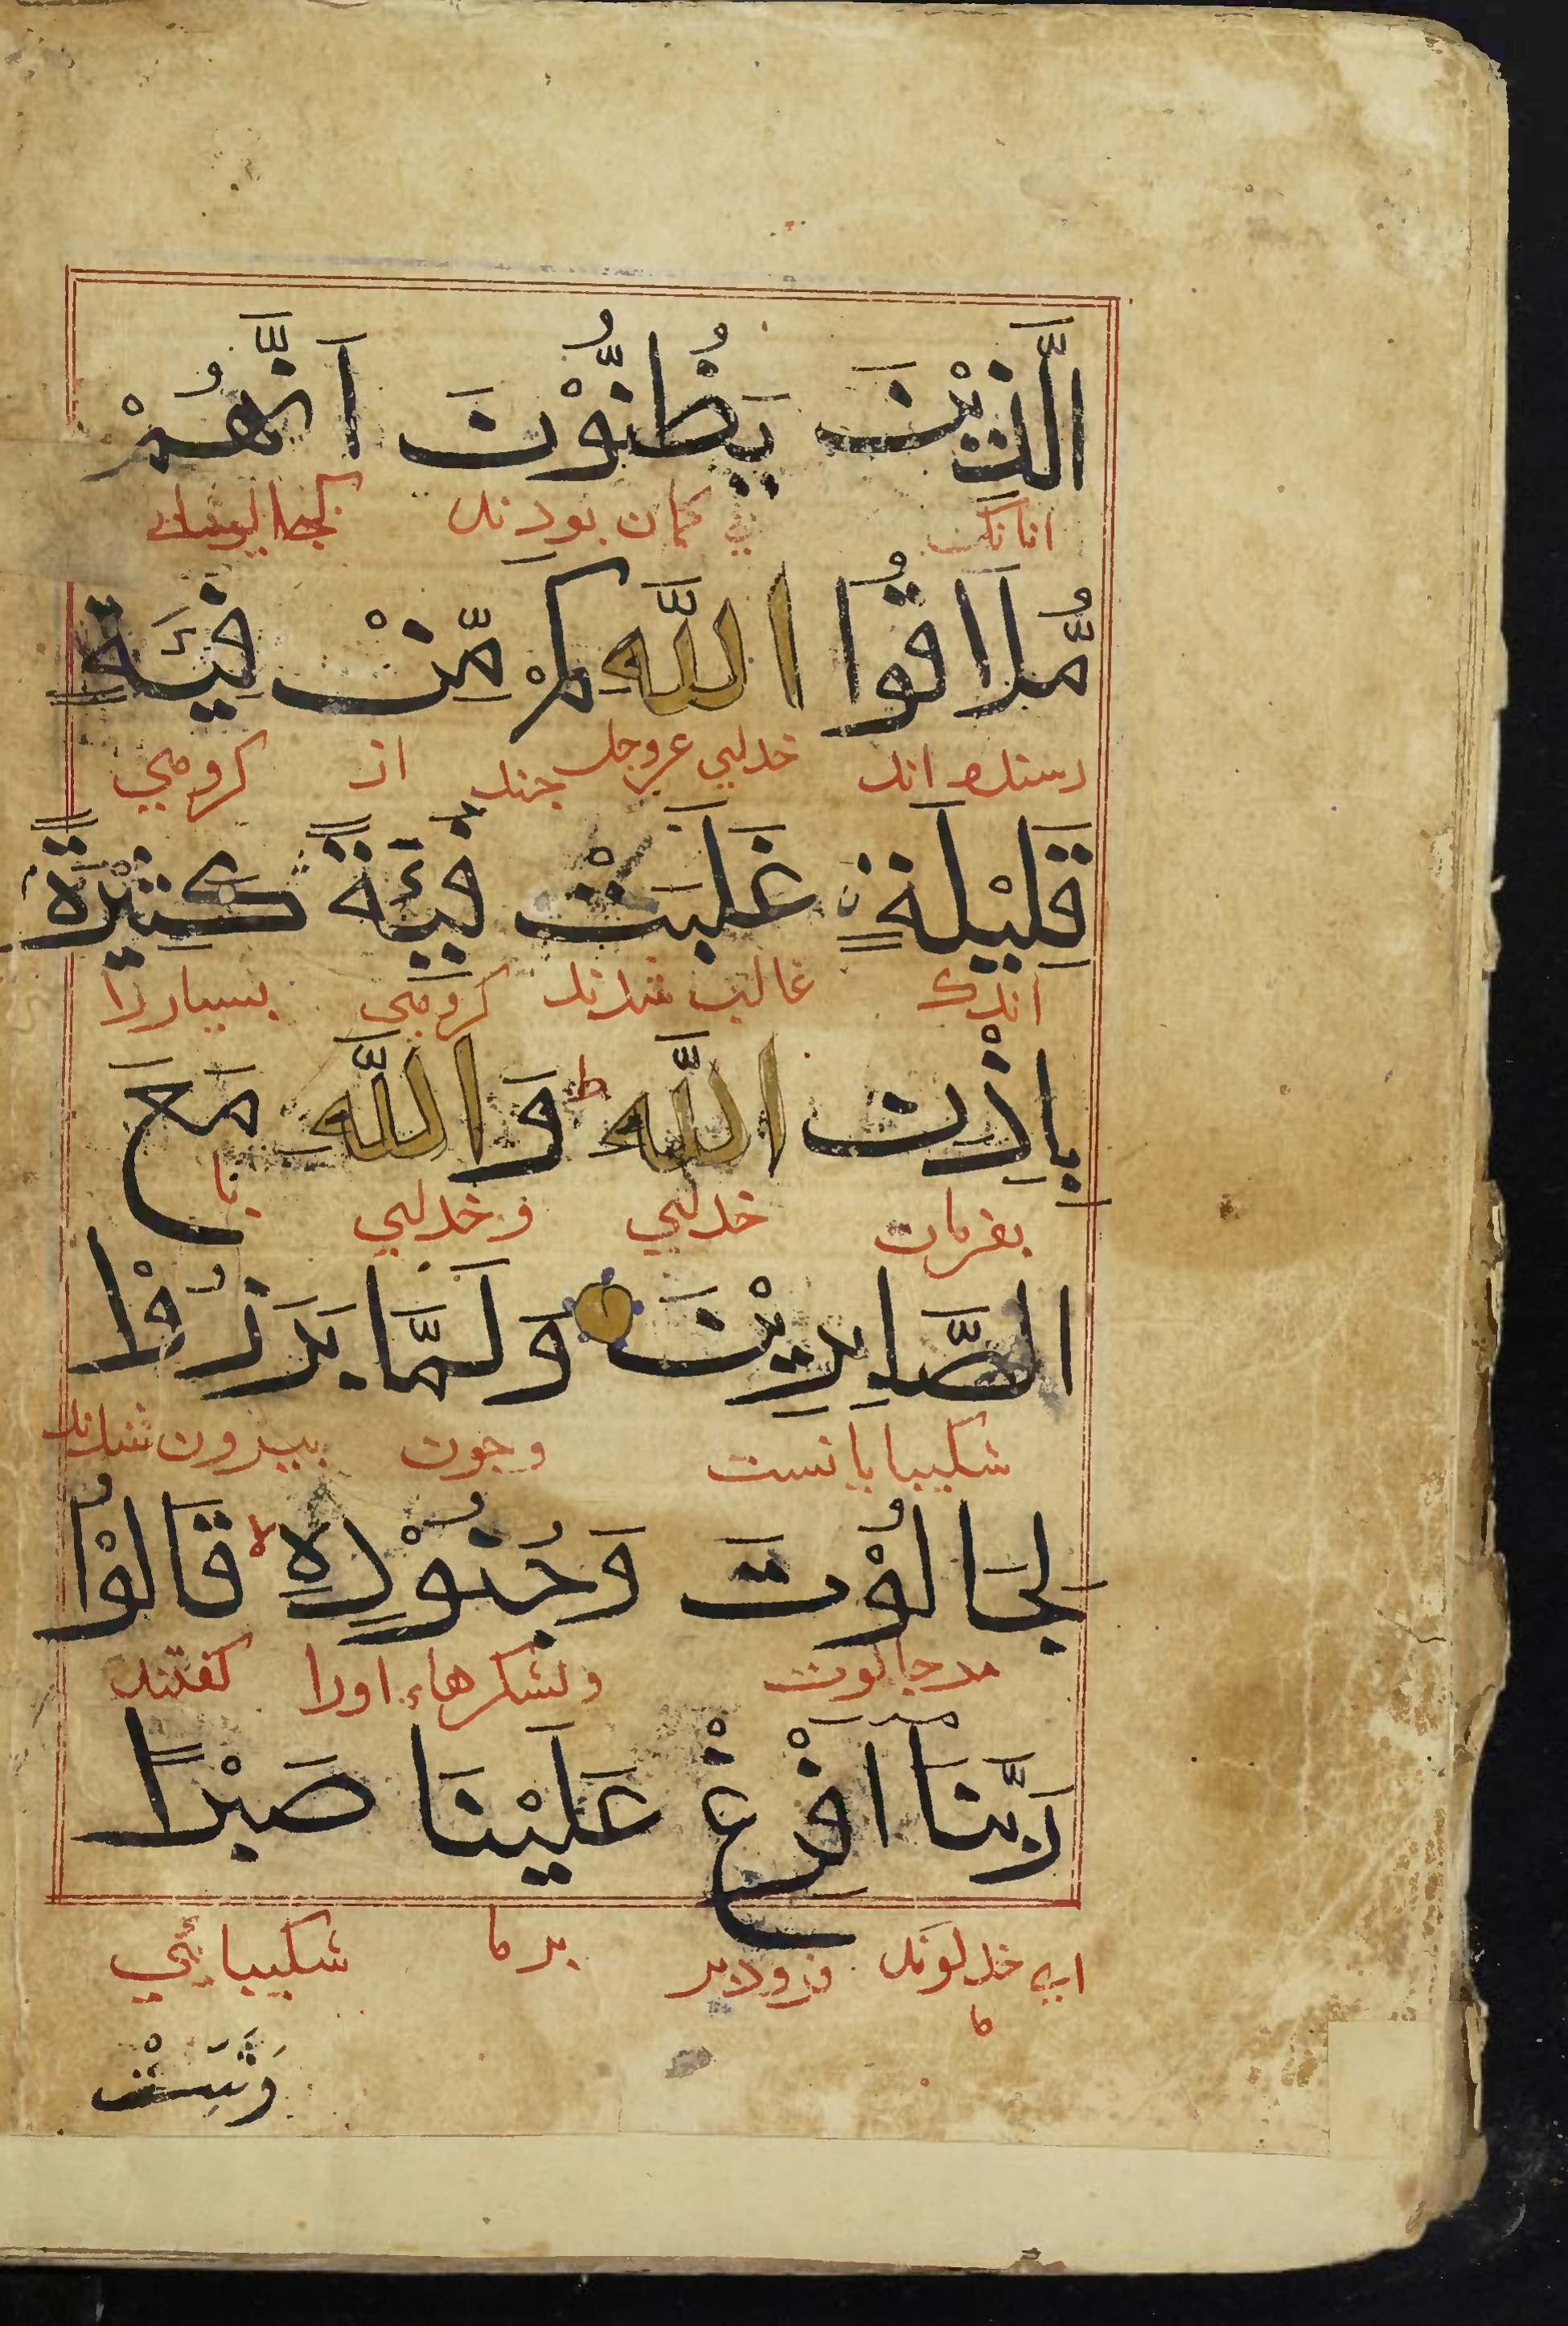 الَّذِیْنَ یَظُنُّوْنَ اَنَّهُمْ
انانک کمان بودند
مُّلَاقُوا اللَّهِ كَمْ مِّنْ فِیَٔةٍ
خدای عزوجل جند از کروهی
قَلِیْلَةٍ غَلَبَتْ فِیَٔةً كَثِیْرَةً
اندک غالب شدند کروهی بسیار را
بِاِذْنِ اللَّهِ ط وَاللَّهُ مَعَ
بفرمان خدای و خدای با
الصَّابِرِیْنَ وَلَمَّا بَرَزُوْا
شکیبایانست و جون بیرون شدند
لِجَالُوْتَ وَجُنُوْدِهِ لا قَالُوْا
مر جالوت و لشکرهاء اورا کفتند
رَبَّنَا اَفْرِغْ عَلَیْنَا صَبْرًا
ای خداوند ما فرود بر ما شکیبایی
وَثَبِّتْ